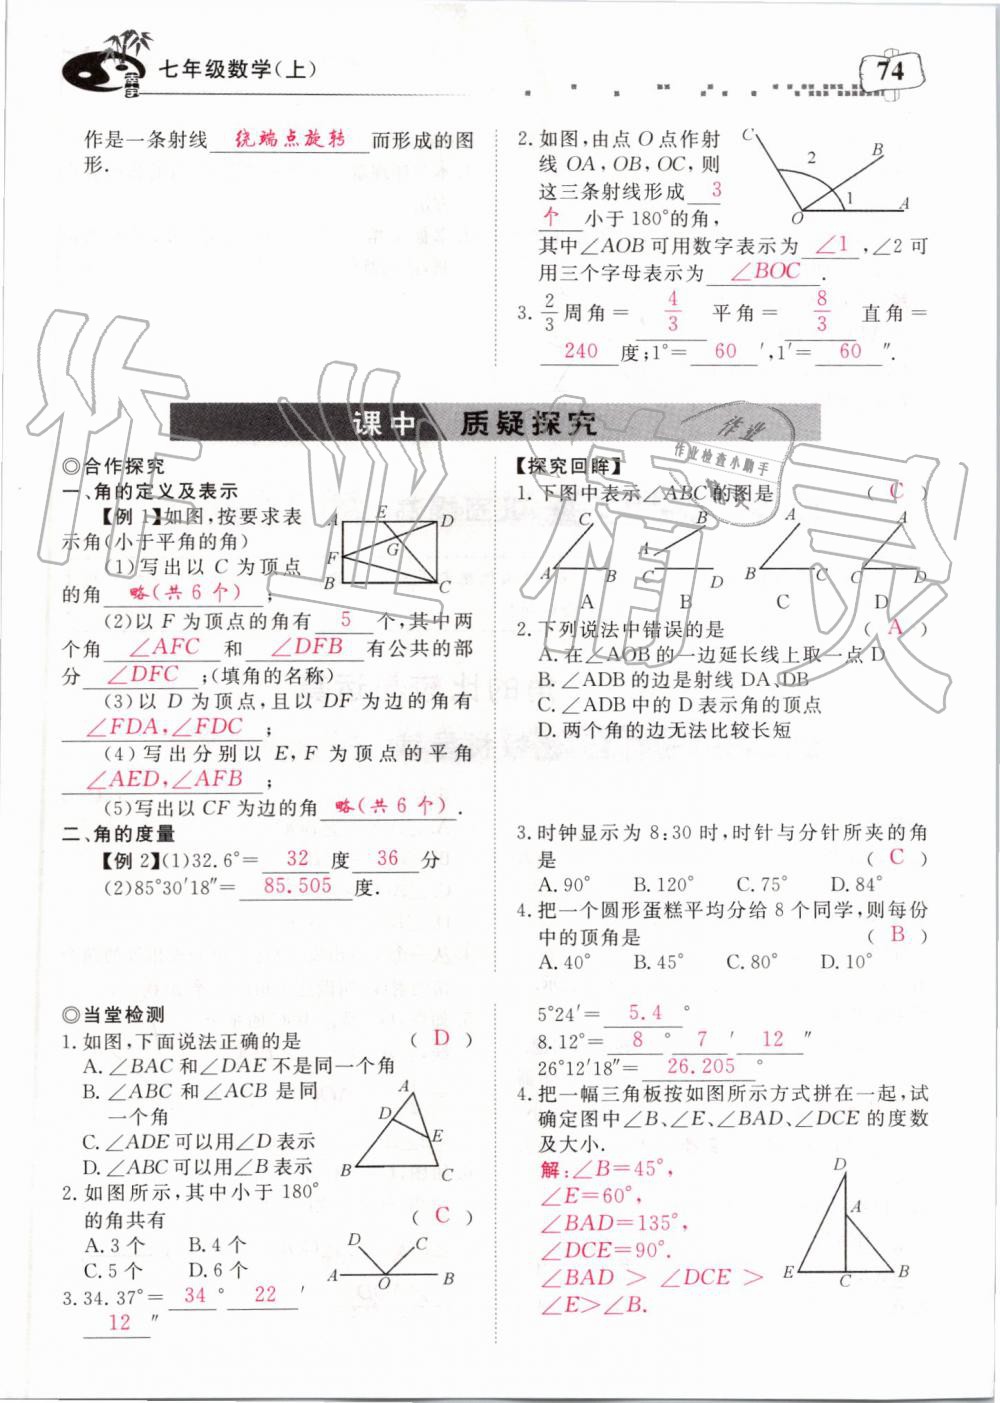 七年级数学(上)
74
作是一条射线 绕端点旋转 而形成的图
形.
2.如图,由点 O 点作射
线 OA,OB,OC,则
这三条射线形成 3
个 小于180°的角,
其中∠AOB可用数字表示为 ∠1 ,∠2可
用三个字母表示为 ∠BOC .
C
B
2
1
O
A
3. 2/3 周角= 4/3 平角= 8/3 直角=
240 度;1°= 60 ′,1′= 60 ″.
课中 质疑探究
◎合作探究
一、角的定义及表示
【例1】如图,按要求表
示角(小于平角的角)
(1)写出以 C 为顶点
的角 略(共6个) ;
A E D
F G
B C
(2)以 F 为顶点的角有 5 个,其中两
个角 ∠AFC 和 ∠DFB 有公共的部
分 ∠DFC ;(填角的名称)
(3)以 D 为顶点,且以 DF 为边的角有
∠FDA,∠FDC ;
(4)写出分别以 E,F 为顶点的平角
∠AED,∠AFB ;
(5)写出以CF为边的角 略(共6个) .
二、角的度量
【例2】(1)32.6°= 32 度 36 分
(2)85°30′18″= 85.505 度.
◎当堂检测
1.如图,下面说法正确的是 ( D )
A.∠BAC和∠DAE不是同一个角
B.∠ABC 和∠ACB 是同
一个角
C.∠ADE可以用∠D表示
D.∠ABC可以用∠B表示
A
D
E
B C
2.如图所示,其中小于180°
的角共有 ( C )
A.3个 B.4个
C.5个 D.6个
D C
A O B
3.34.37°= 34 ° 22 ′
12 ″
【探究回眸】
1.下图中表示∠ABC的图是 ( C )
C B A A
A B A C D B C C D
A B C D
2.下列说法中错误的是 ( A )
A.在∠AOB的一边延长线上取一点D
B.∠ADB的边是射线DA、DB
C.∠ADB中的D表示角的顶点
D.两个角的边无法比较长短
3.时钟显示为8:30时,时针与分针所夹的角
是 ( C )
A.90° B.120° C.75° D.84°
4.把一个圆形蛋糕平均分给8个同学,则每份
中的顶角是 ( B )
A.40° B.45° C.80° D.10°
5°24′= 5.4 °
8.12°= 8 ° 7 ′ 12 ″
26°12′18″= 26.205 °
4.把一幅三角板按如图所示方式拼在一起,试
确定图中∠B、∠E、∠BAD、∠DCE的度数
及大小.
解:∠B=45°,
∠E=60°,
∠BAD=135°,
∠DCE=90°.
∠BAD > ∠DCE >
∠E>∠B.
D
A
E C B
作业精灵
作业
作业检查小助手
精灵